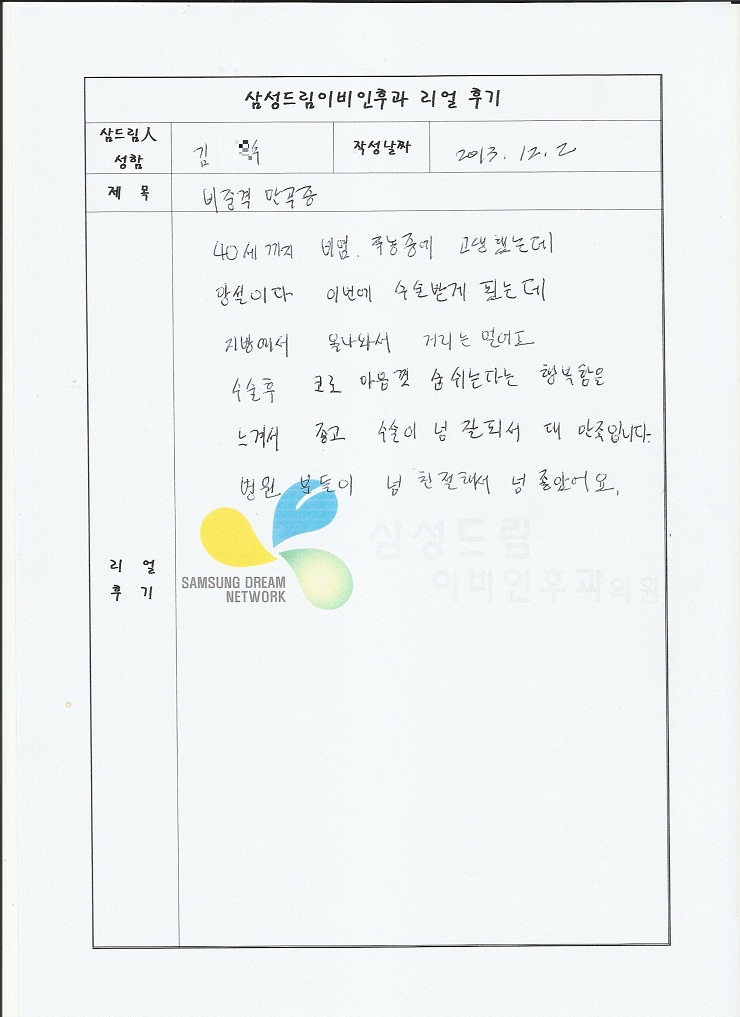 삼성드림이비인후과 리얼 후기
삼드림人 성함 김 수 작성날짜 2013. 12. 2
제 목 비중격 만곡증
40세까지 비염. 축농증에 고생했는데
망설이다 이번에 수술받게 됬는데
지방에서 올나와서 거리는 멀어도
수술후 코로 마음껏 숨쉬는다는 행복함을
느겨서 좋고 수술이 넘 잘되서 대 만족입니다.
병원 분들이 넘 친절해서 넘 좋았어요.
리 얼 후 기
삼성드림
이비인후과의원
SAMSUNG DREAM
NETWORK